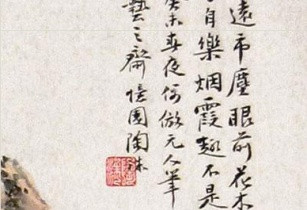 遠市塵眼前花木
自樂烟霞趣不是
癸未春夜仿元人筆
藝之齋 憶園陶